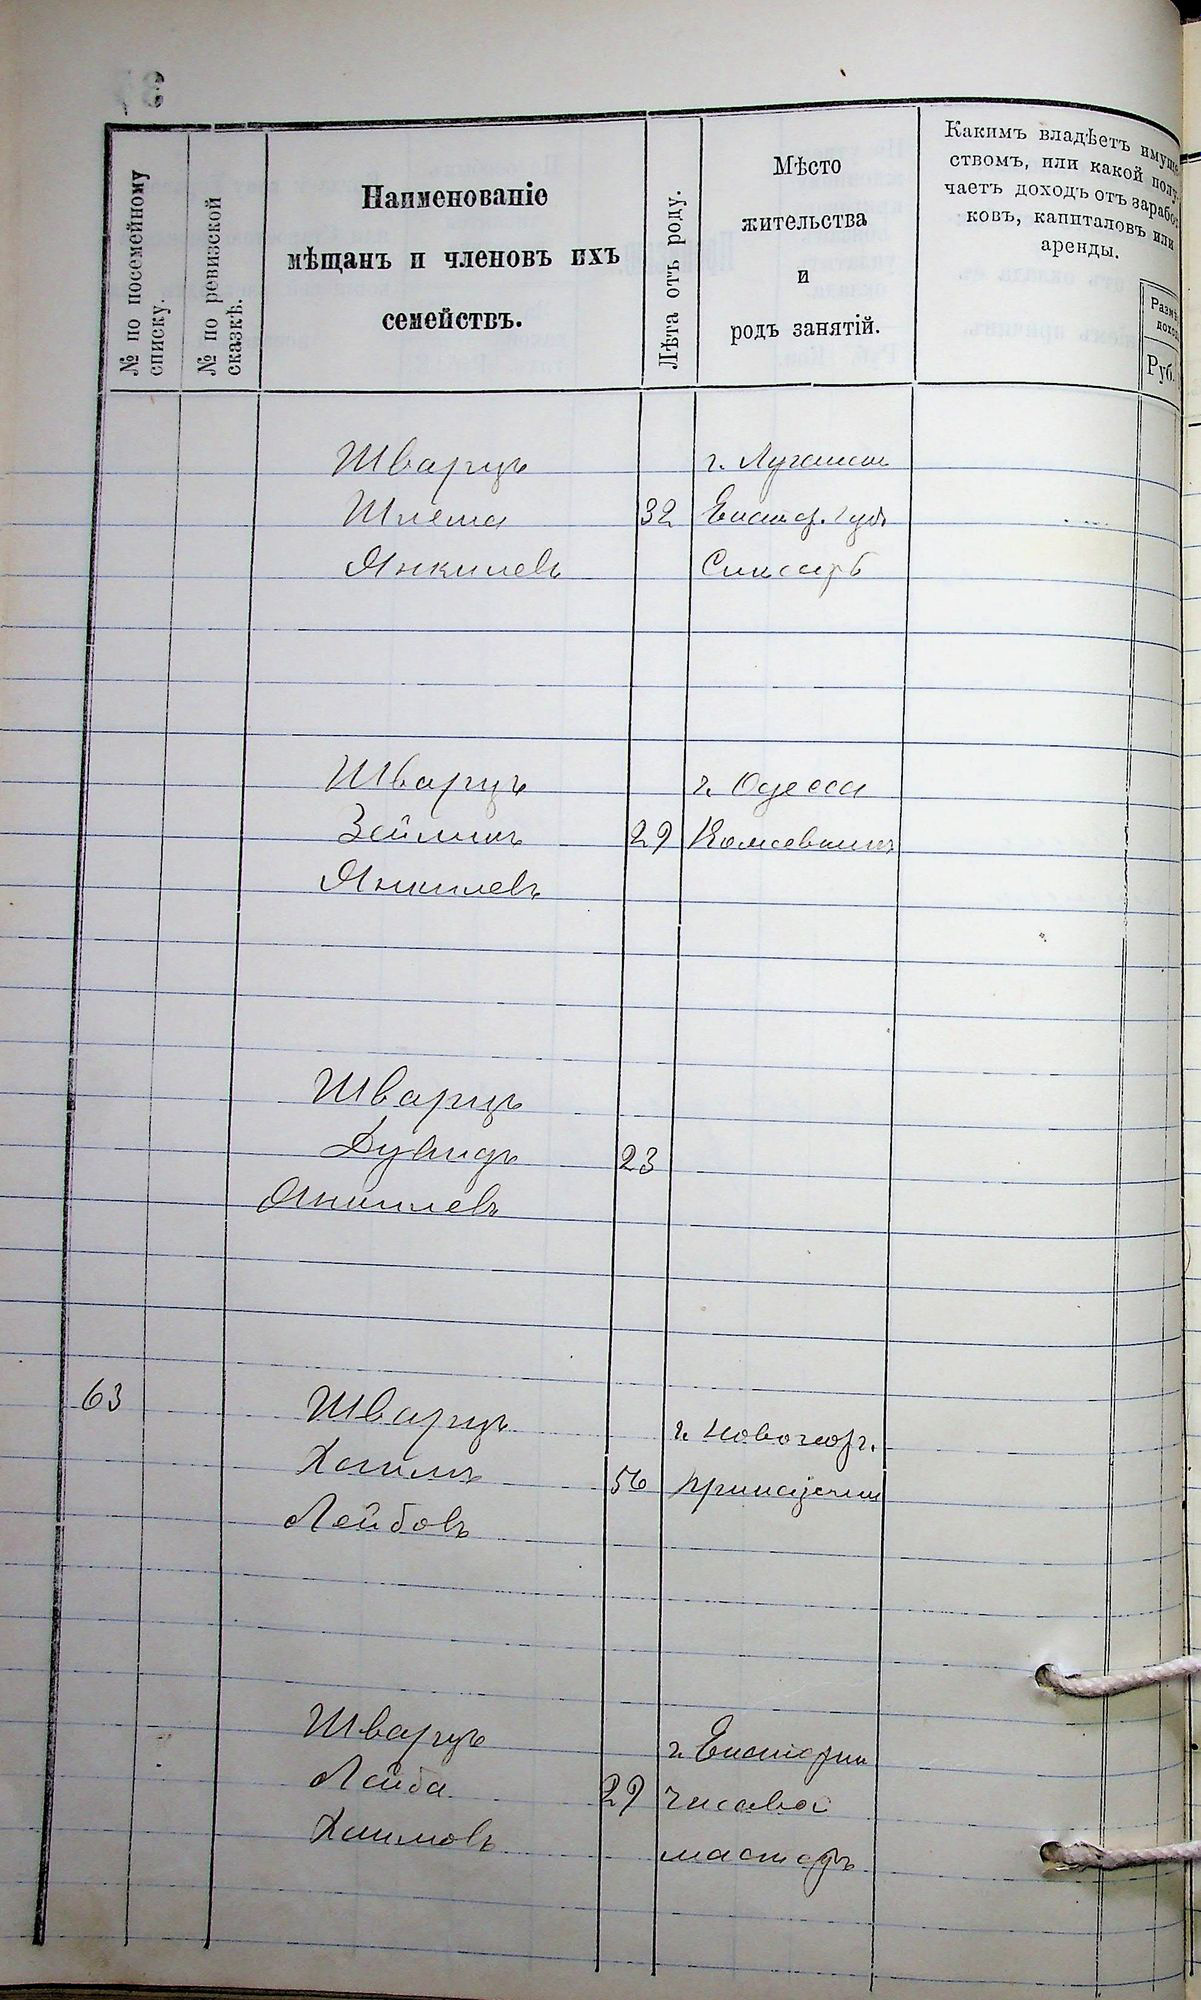 № по посемейному
списку.
№ по ревизской
сказкѣ.
Наименованіе
мѣщанъ и членовъ ихъ
семействъ.
Лѣта отъ роду.
Мѣсто
жительства
и
родъ занятій.
Какимъ владѣетъ имуще
ствомъ, или какой полу
чаетъ доходъ отъ заработ
ковъ, капиталовъ или
аренды.
Руб.
Шварцъ г. Луганск
Шлема 32 Екатер. губ.
Янкилевъ Слесарь
Шварцъ г. Одесса
Зейликъ 29
Янкилевъ
Шварцъ
Дувидъ 23
Янкилевъ
63 Шварцъ г. Новогеор.
Хаимъ 56
Лейбовъ
Шварцъ г.
Лейба 29 Часовой
Хаимовъ мастеръ